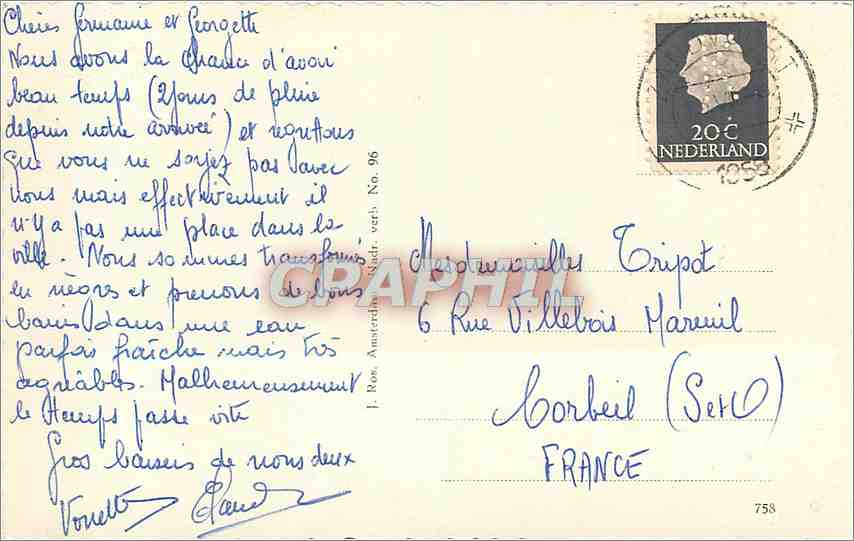 Chères Germaine et Georgette
Nous avons la chance d'avoir
beau temps (2 jours de pluie
depuis notre arrivée) et regrettons
que vous ne soyez pas avec
nous mais effectivement il
n'y a pas une place dans la
ville. Nous sommes transformés
en nègres et prenons de bons
bains dans une eau
parfois fraîche mais très
agréables. Malheureusement
le temps passe vite
Gros baisers de nous deux
J. Ros. Amsterdam Nadr. verb No. 96
20C
NEDERLAND
ZANDVOORT
1958
CPAPHIL
Mesdemoiselles Tripot
6 Rue Villebois Mareuil
Corbeil (S et O)
FRANCE
758